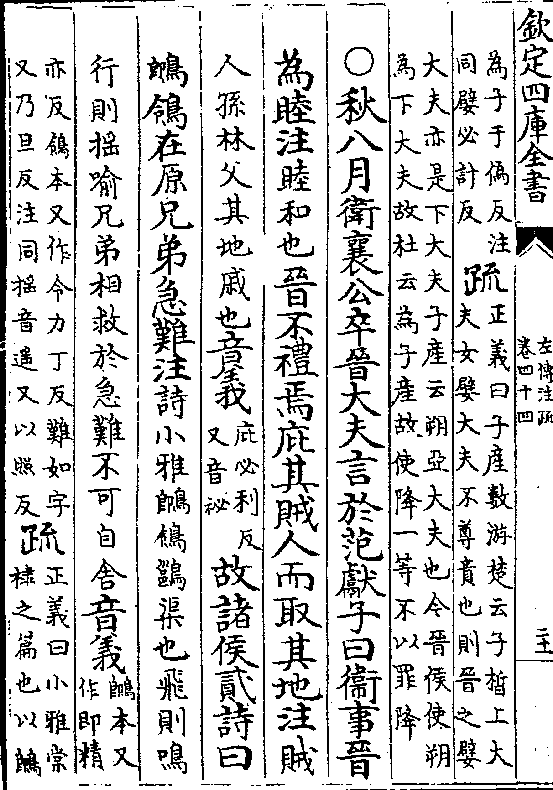 欽定四庫全書
左傳注疏
卷四十四
二十
為子于偽反注
同嬖必計反
疏
正義曰子產數游楚云子晳上大
夫女嬖大夫不尊貴也則晉之嬖
大夫亦是下大夫子產云朔亞大夫也今晉侯使朔
為下大夫故杜云為子產故使降一等不以罪降
○秋八月衛襄公卒晉大夫言於范獻子曰衛事晉
為睦注睦和也晉不禮焉庇其賊人而取其地注賊
人孫林父其地戚也音義
庇必利反
又音祕
故諸侯貳詩曰
鶺鴒在原兄弟急難注詩小雅鶺鴒鷄渠也飛則鳴
行則揺喻兄弟相救於急難不可自舍音義
鶺本又
作即精
亦反鴒本又作令力丁反難如字
又乃旦反注同揺音遥又以照反
疏
正義曰小雅棠
棣之篇也以鶺